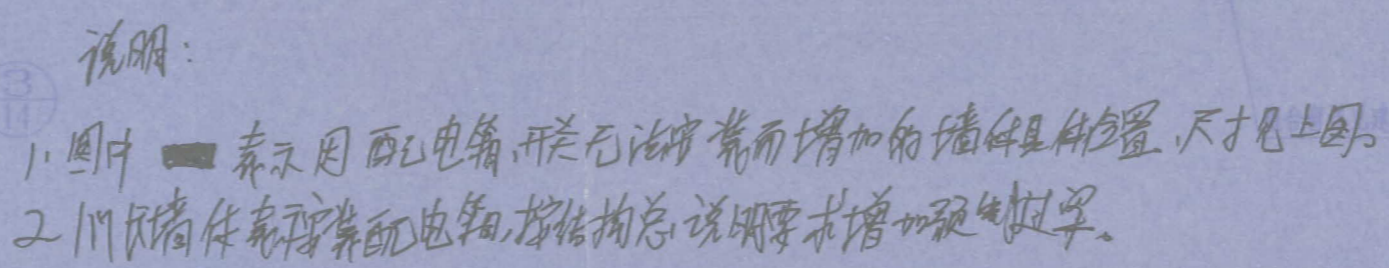 说明:
3
11
1. 图中 表示因配电箱、开关无法安装而增加的墙体具体位置、尺寸见上图。
2 门 墙体 安装配电箱,按结构总说明要求增加预制过梁。